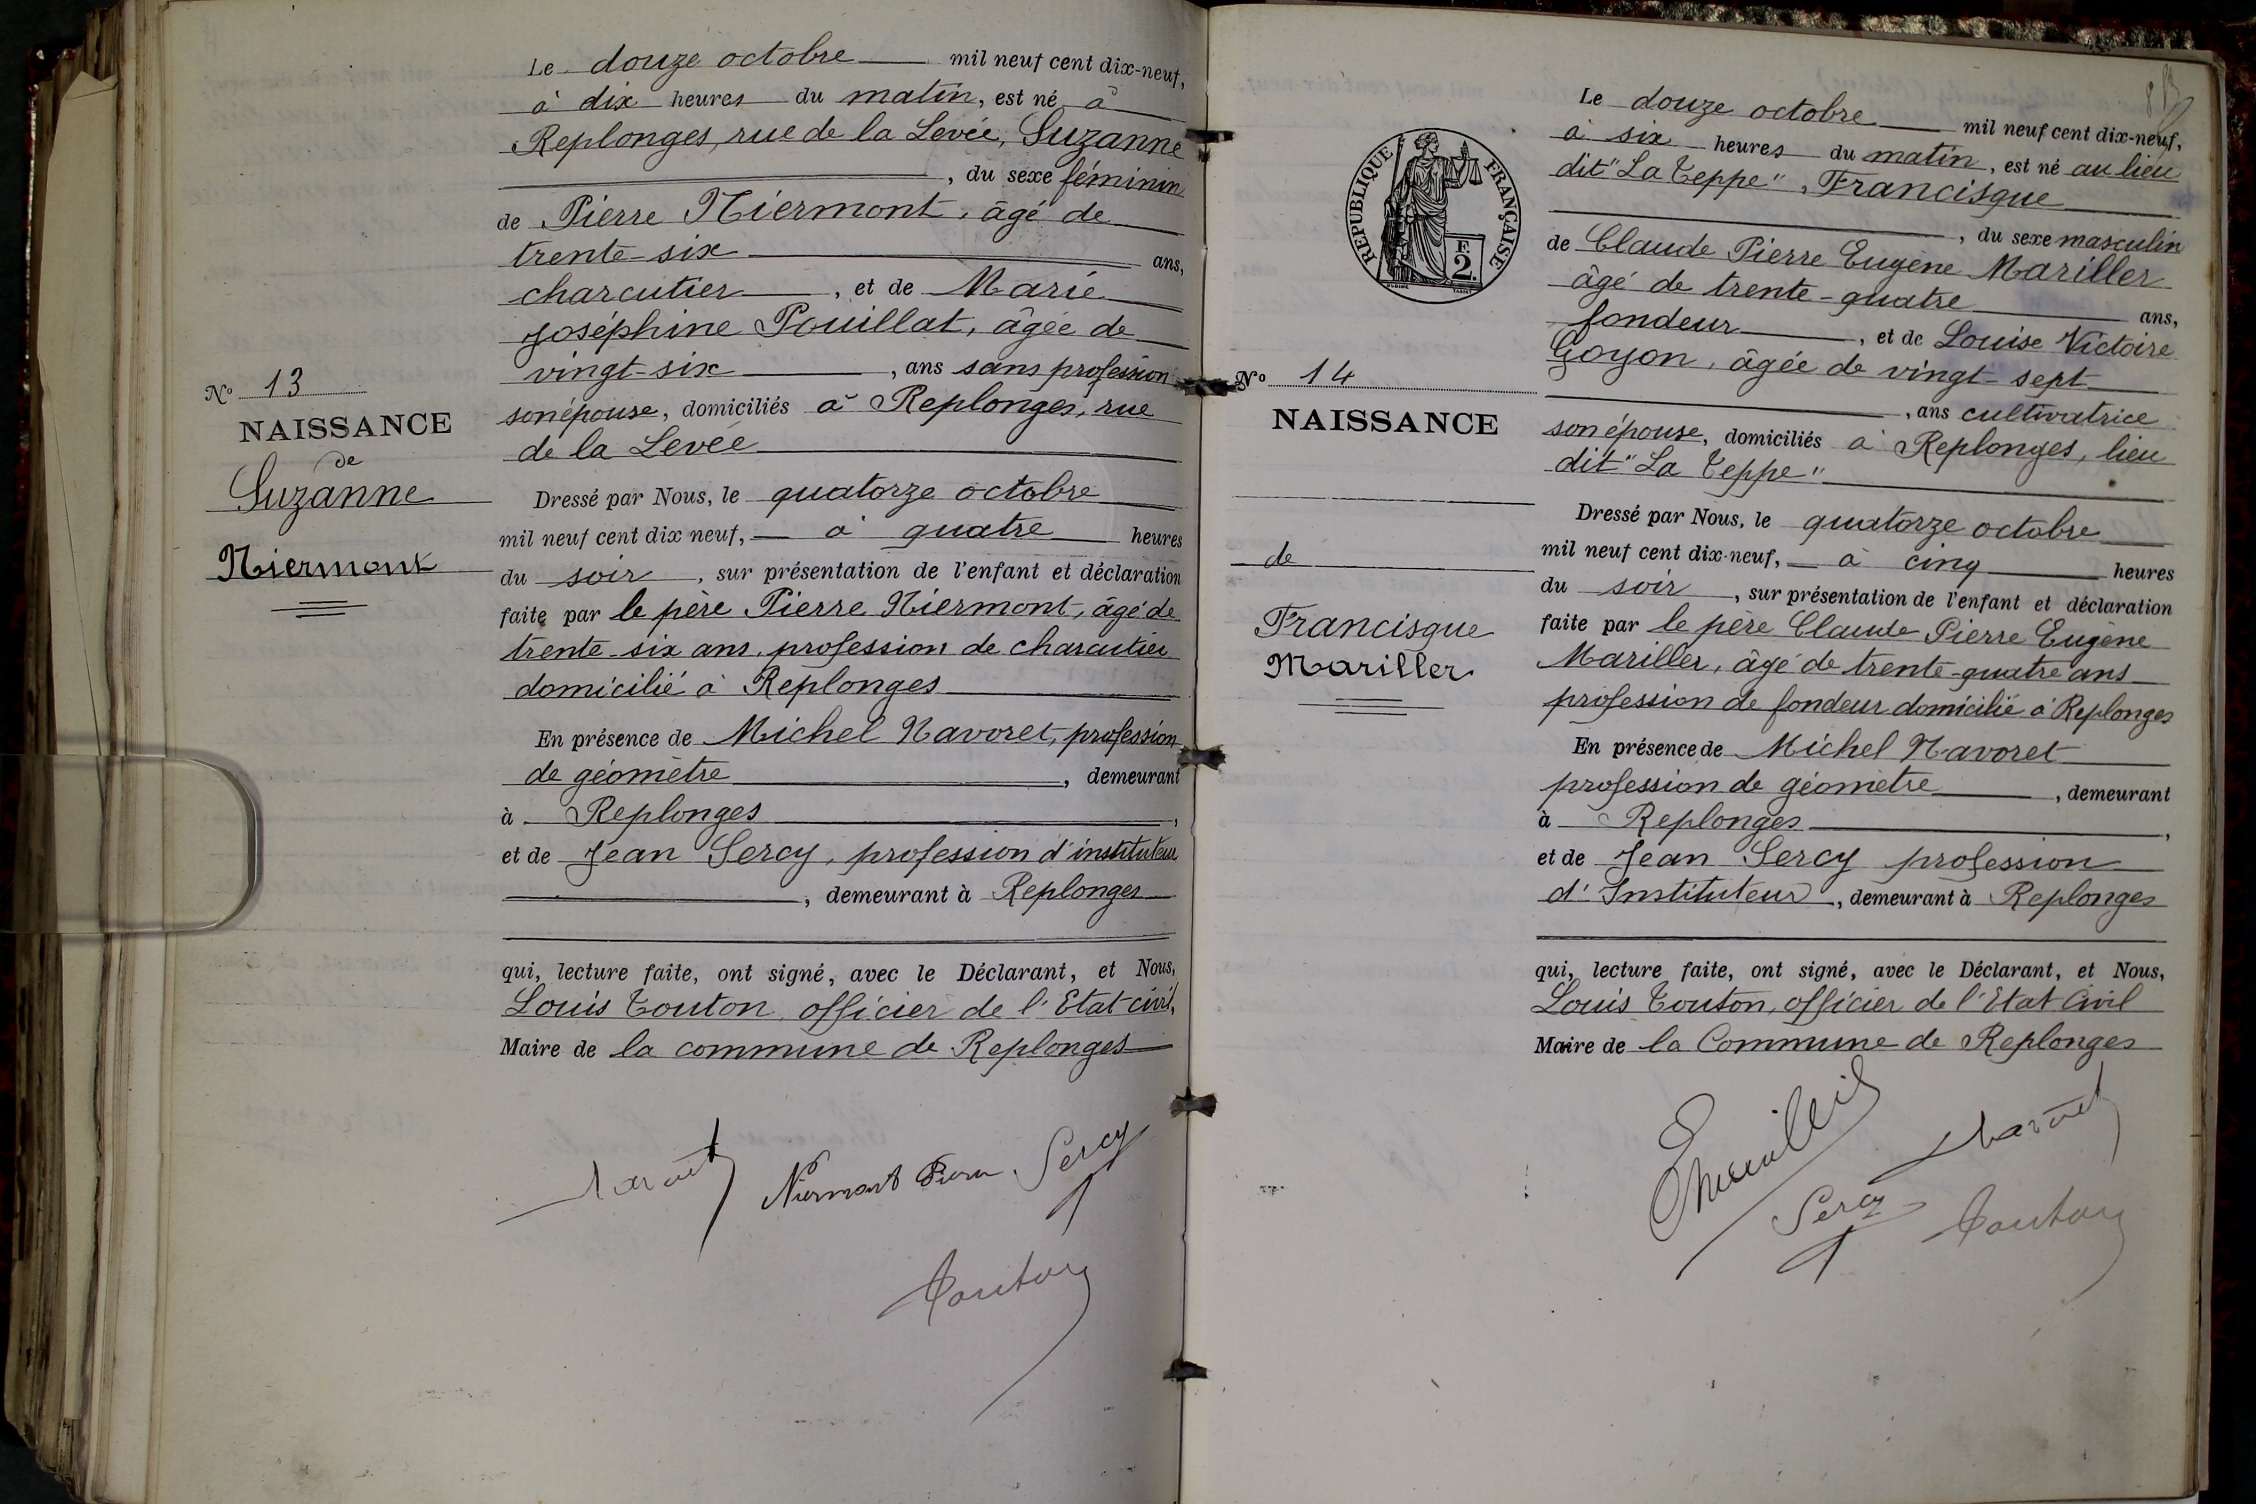 Le douze octobre mil neuf cent dix-neuf,
à dix heures du matin, est né à
Replonges, rue de la Levée, Suzanne
, du sexe féminin
de Pierre Niermont, âgé de
trente-six ans,
charcutier, et de Marie
Joséphine Pouillat, âgée de
vingt-six, ans sans profession
son épouse, domiciliés à Replonges, rue
de la Levée
No 13
NAISSANCE
de
Suzanne
Niermont
Dressé par Nous, le quatorze octobre
mil neuf cent dix neuf, à quatre heures
du soir, sur présentation de l'enfant et déclaration
faite par le père Pierre Niermont, âgé de
trente-six ans, profession de charcutier
domicilié à Replonges
En présence de Michel Navoret, profession
de géomètre, demeurant
à Replonges,
et de Jean Sercy, profession d'instituteur
, demeurant à Replonges
qui, lecture faite, ont signé, avec le Déclarant, et Nous,
Louis Touton, officier de l'Etat-civil,
Maire de la commune de Replonges
Navoret Niermont Pierre Sercy
Touton
Le douze octobre mil neuf cent dix-neuf,
à six heures du matin, est né au lieu
dit "La Teppe", Francisque
, du sexe masculin
de Claude Pierre Eugène Mariller
âgé de trente-quatre ans,
fondeur, et de Louise Victoire
Goyon, âgée de vingt-sept
, ans cultivatrice
son épouse, domiciliés à Replonges, lieu
dit "La Teppe"
REPUBLIQUE FRANÇAISE
F.
2.
No 14
NAISSANCE
de
Francisque
Mariller
Dressé par Nous, le quatorze octobre
mil neuf cent dix-neuf, à cinq heures
du soir, sur présentation de l'enfant et déclaration
faite par le père Claude Pierre Eugène
Mariller, âgé de trente-quatre ans
profession de fondeur domicilié à Replonges
En présence de Michel Navoret
profession de géomètre, demeurant
à Replonges,
et de Jean Sercy profession
d'Instituteur, demeurant à Replonges
qui, lecture faite, ont signé, avec le Déclarant, et Nous,
Louis Touton, officier de l'Etat Civil
Maire de la Commune de Replonges
Navoret
Sercy Touton